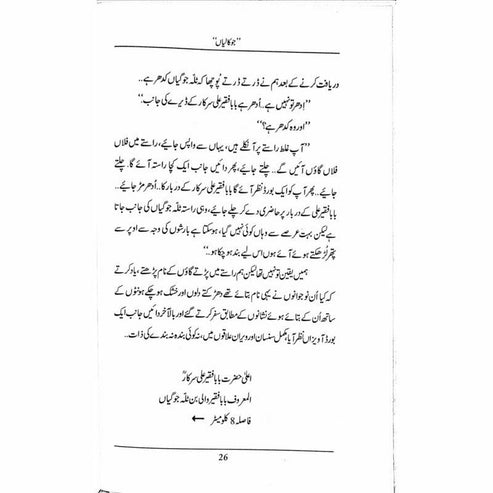 ”جوکالیاں“
دریافت کرنے کے بعد ہم نے ڈرتے ڈرتے پوچھا کہ ٹلّہ جوگیاں کدھر ہے..
”اِدھر تو نہیں ہے.. اُدھر ہے بابا فقیر علی سرکار کے ڈیرے کی جانب“
”اور وہ کدھر ہے؟“
”آپ غلط راستے پر آ نکلے ہیں، یہاں سے واپس جائیے، راستے میں فلاں
فلاں گاؤں آئیں گے.. چلتے جائیے، پھر دائیں جانب ایک کچا راستہ آئے گا۔ چلتے
جائیے.. پھر آپ کو ایک بورڈ نظر آئے گا بابا فقیر علی سرکار کے دربار کا.. اُدھر مڑ جائیے..
بابا فقیر علی کے دربار پر حاضری دے کر چلے جائیے، وہی راستہ ٹلّہ جوگیاں کی جانب جاتا
ہے لیکن بہت عرصے سے وہاں کوئی نہیں گیا، ہوسکتا ہے بارشوں کی وجہ سے اوپر سے
پتھر لُڑھکتے ہوئے آئے ہوں اس لیے بند ہو چکا ہو..“
ہمیں یقین تو نہیں تھا لیکن ہم راستے میں پڑتے گاؤں کے نام پڑھتے، یاد کرتے
کہ کیا اُن نوجوانوں نے یہی نام بتائے تھے دھڑکتے دلوں اور خشک ہو چکے ہونٹوں کے
ساتھ اُن کے بتائے ہوئے نشانوں کے مطابق سفر کرتے گئے اور بالآخر دائیں جانب ایک
بورڈ آویزاں نظر آیا، مکمل سنسان اور ویران علاقوں میں، نہ کوئی بندہ نہ بندے کی ذات..
اعلیٰ حضرت بابا فقیر علی سرکارؒ
المعروف بابا فقیر والی بن ٹلّہ جوگیاں
فاصلہ 8 کلومیٹر ←
26